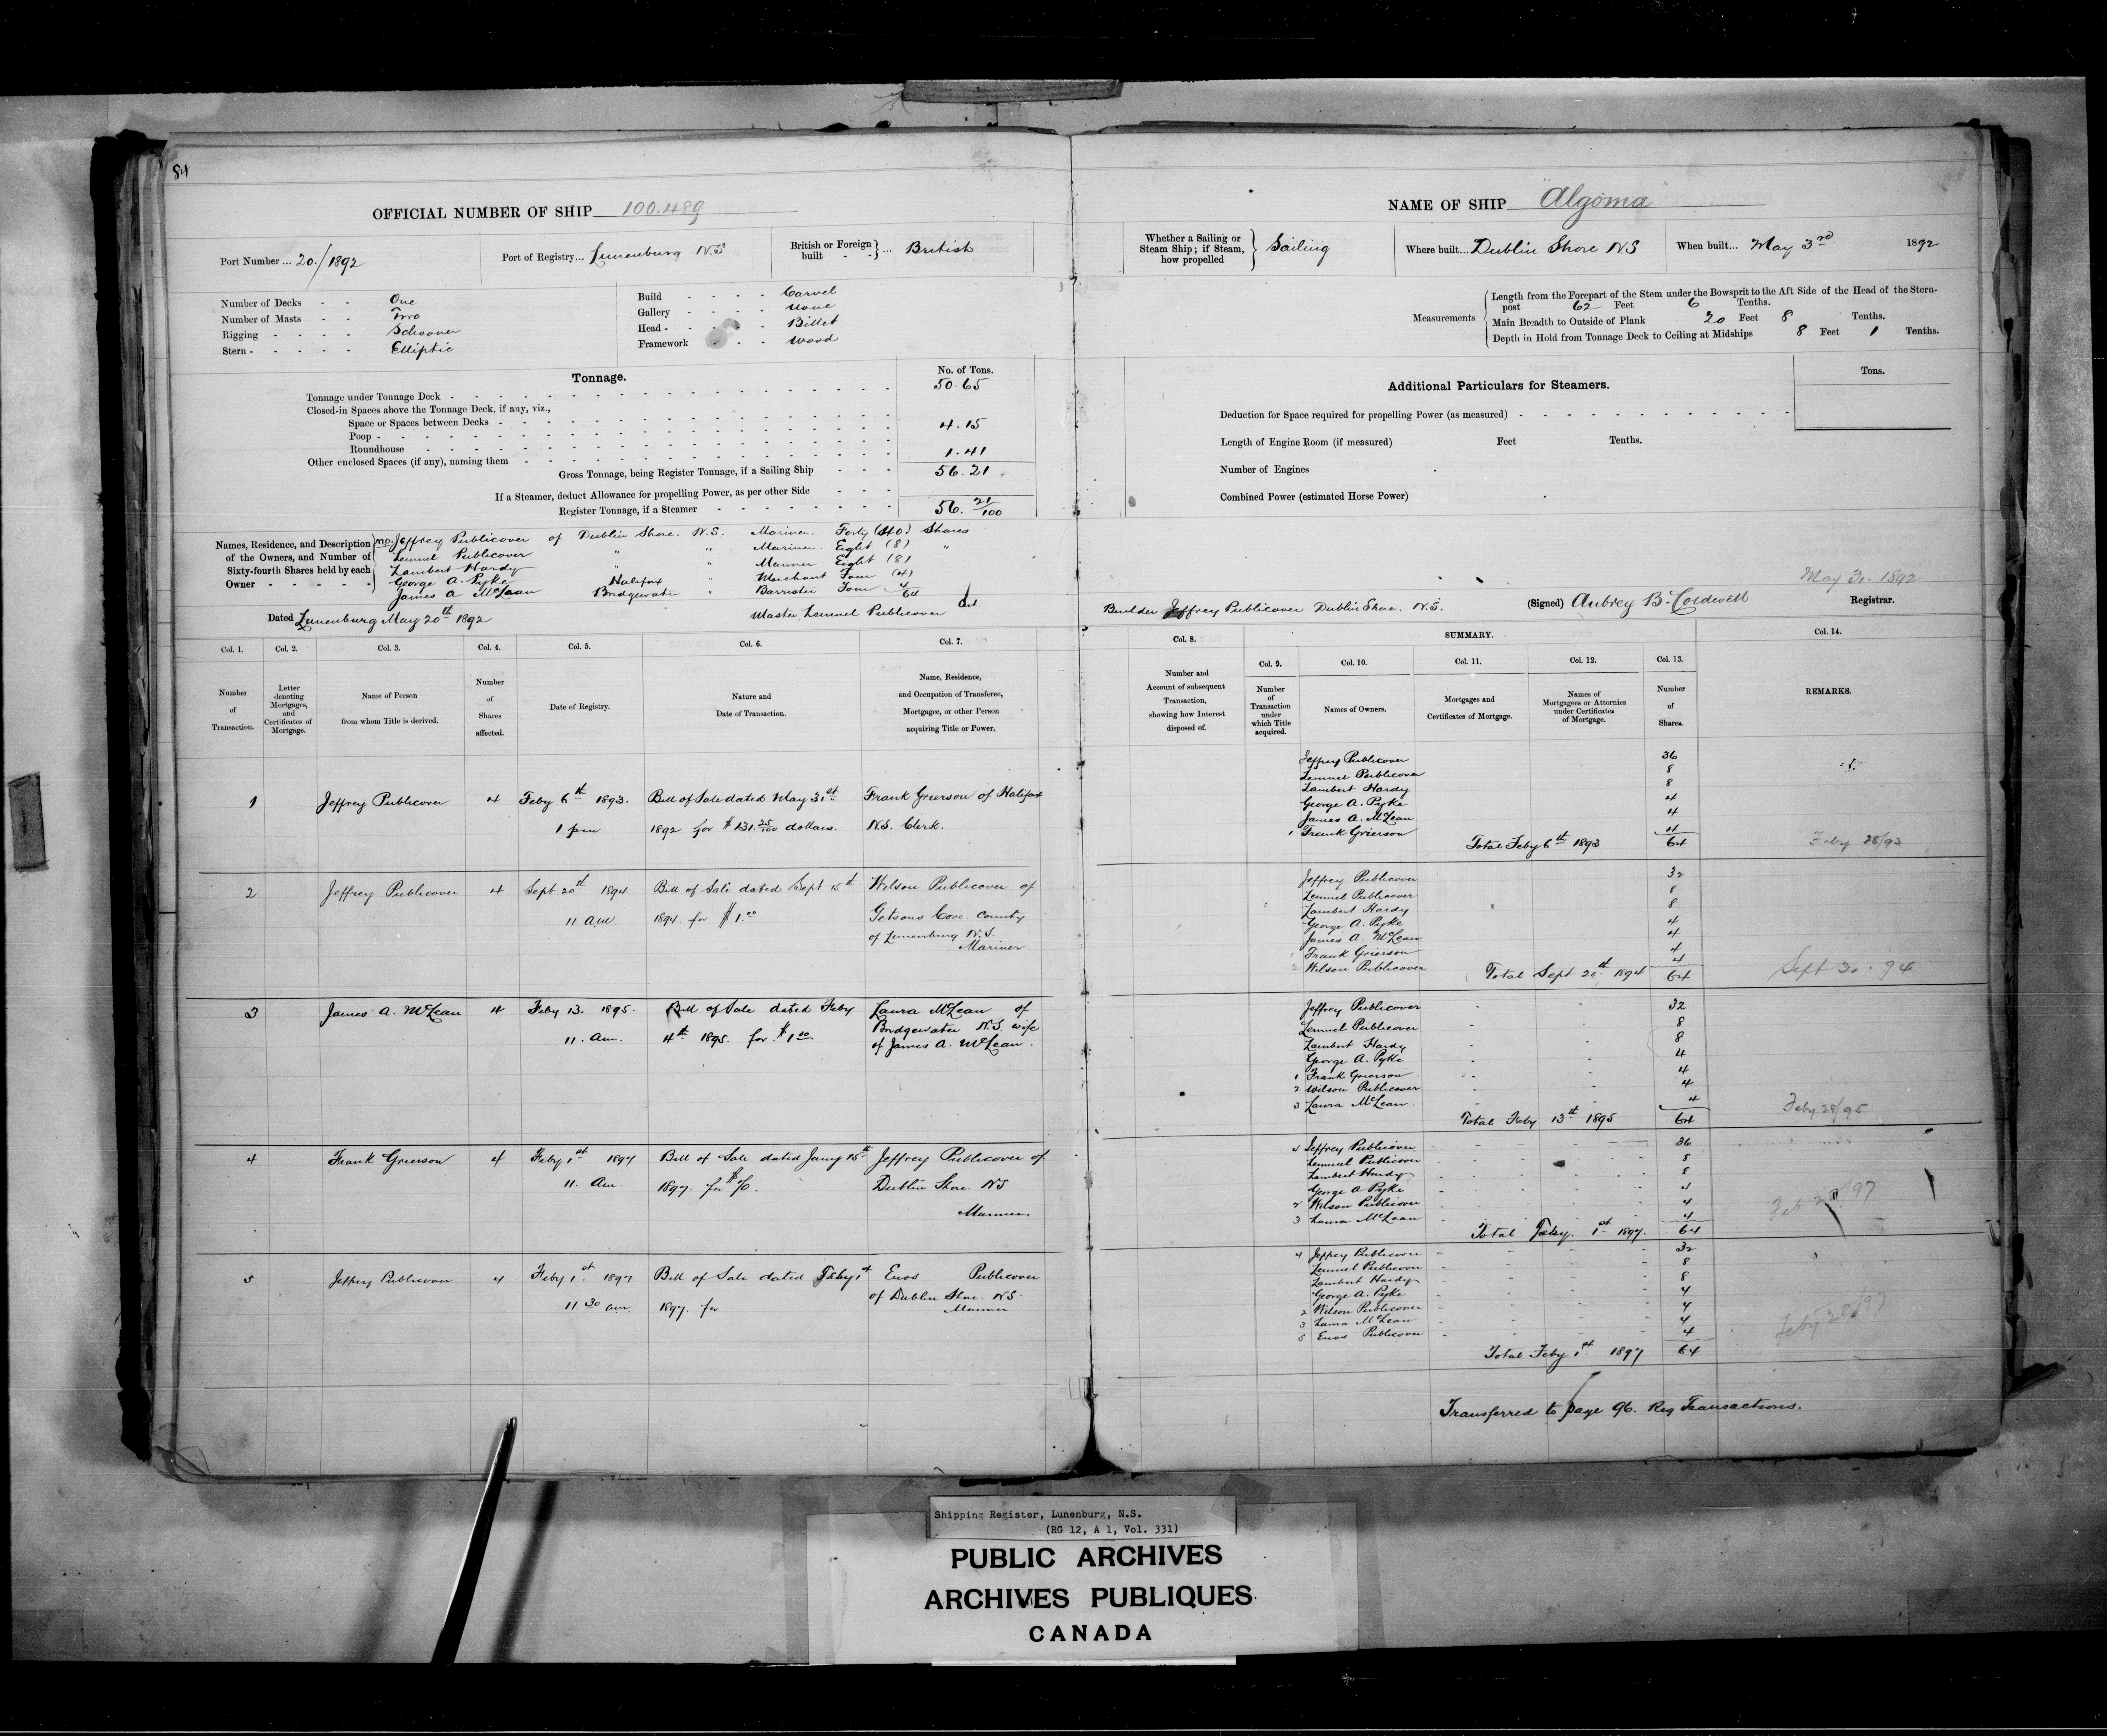 84
OFFICIAL NUMBER OF SHIP 100.489
Port Number ... 20./1892
Port of Registry... Lunenburg N.S
British or Foreign built - - } ... British
Number of Decks - - One
Number of Masts - - Two
Rigging - - - - Schooner
Stern - - - - - Elliptic
Build - - - - Carvel
Gallery - - - - None
Head - - - - - Billet
Framework - - - Wood
Tonnage.
No. of Tons.
Tonnage under Tonnage Deck - 50.65
Closed-in Spaces above the Tonnage Deck, if any, viz.,
Space or Spaces between Decks -
Poop - 4.15
Roundhouse -
Other enclosed Spaces (if any), naming them - 1.41
Gross Tonnage, being Register Tonnage, if a Sailing Ship - - - 56.21
If a Steamer, deduct Allowance for propelling Power, as per other Side - - -
Register Tonnage, if a Steamer - 56. 21/100
Names, Residence, and Description of the Owners, and Number of Sixty-fourth Shares held by each Owner - - - - -
Jeffrey Publicover of Dublin Shore. N.S. Mariner. Forty (40) Shares
Lemuel Publicover " " Mariner. Eight (8) "
Lambert Hardy " " Mariner Eight (8)
George A. Pyke Halifax " Merchant Four (4)
James A McLean Bridgewater " Barrister Four 4
64
Dated Lunenburg May 20th 1892
Master Lemuel Publicover
Col. 1.
Number of Transaction.
Col. 2.
Letter denoting Mortgages, and Certificates of Mortgage.
Col. 3.
Name of Person from whom Title is derived.
Col. 4.
Number of Shares affected.
Col. 5.
Date of Registry.
Col. 6.
Nature and Date of Transaction.
Col. 7.
Name, Residence, and Occupation of Transferee, Mortgagee, or other Person acquiring Title or Power.
1 Jeffrey Publicover 4 Feby 6th 1893. Bill of Sale dated May 31st Frank Grierson of Halifax
1 pm 1892 for $131.25/100 dollars. N.S. Clerk.
2 Jeffrey Publicover 4 Sept 20th 1894 Bill of Sale dated Sept 15th Wilson Publicover of
11 am. 1894. for $1.00 Getsons Cove County
of Lunenburg N.S.
Mariner
3 James A. McLean 4 Feby 13. 1895. Bill of Sale dated Feby Laura McLean of
11. am. 4th 1895. for $1.00 Bridgewater N.S. wife
of James A. McLean.
4 Frank Grierson 4 Feby 1st 1897 Bill of Sale dated Jany 15th Jeffrey Publicover of
11. am. 1897. for Dublin Shore. NS
Mariner.
5 Jeffrey Publicover 4 Feby 1st 1897 Bill of Sale dated Feby 1st Enos Publicover
11 30 am 1897. for of Dublin Shore. NS.
Mariner
NAME OF SHIP "Algoma"
Whether a Sailing or Steam Ship; if Steam, how propelled } Sailing
Where built... Dublin Shore NS
When built... May 3rd 1892
Measurements
Length from the Forepart of the Stem under the Bowsprit to the Aft Side of the Head of the Stern-
post 62 Feet 6 Tenths.
Main Breadth to Outside of Plank 20 Feet 8 Tenths.
Depth in Hold from Tonnage Deck to Ceiling at Midships 8 Feet 1 Tenths.
Additional Particulars for Steamers.
Tons.
Deduction for Space required for propelling Power (as measured) -
Length of Engine Room (if measured) Feet Tenths.
Number of Engines
Combined Power (estimated Horse Power)
May 31. 1892
Builder Jeffrey Publicover Dublin Shore. N.S.
(Signed) Aubrey B. Caldwell Registrar.
Col. 8.
Number and Account of subsequent Transaction, showing how Interest disposed of.
SUMMARY.
Col. 9.
Number of Transaction under which Title acquired.
Col. 10.
Names of Owners.
Col. 11.
Mortgages and Certificates of Mortgage.
Col. 12.
Names of Mortgagees or Attornies under Certificates of Mortgage.
Col. 13.
Number of Shares.
Col. 14.
REMARKS.
Jeffrey Publicover 36
Lemuel Publicover 8
Lambert Hardy 8
George A. Pyke 4
James A. McLean 4
1 Frank Grierson 4
Total Feby 6th 1893 64 Feby 28/93
Jeffrey Publicover 32
Lemuel Publicover 8
Lambert Hardy 8
George A. Pyke 4
James A. McLean 4
1 Frank Grierson 4
2 Wilson Publicover 4
Total Sept 20th 1894 64 Sept 30. 94
Jeffrey Publicover 32
Lemuel Publicover 8
Lambert Hardy 8
George A. Pyke 4
1 Frank Grierson 4
2 Wilson Publicover 4
3 Laura McLean 4
Total Feby 13th 1895 64 Feby 28/95
4 Jeffrey Publicover 36
Lemuel Publicover 8
Lambert Hardy 8
George A Pyke 4
2 Wilson Publicover 4
3 Laura McLean 4
Total Feby. 1st 1897. 64 Feb 28/97
4 Jeffrey Publicover 32
Lemuel Publicover 8
Lambert Hardy 8
George A. Pyke 4
2 Wilson Publicover 4
3 Laura McLean 4
5 Enos Publicover 4
Total Feby 1st 1897 64 Feby 28/97
Transferred to page 96. Reg Transactions.
Shipping Register, Lunenburg, N.S.
(RG 12, A 1, Vol. 331)
PUBLIC ARCHIVES
ARCHIVES PUBLIQUES
CANADA